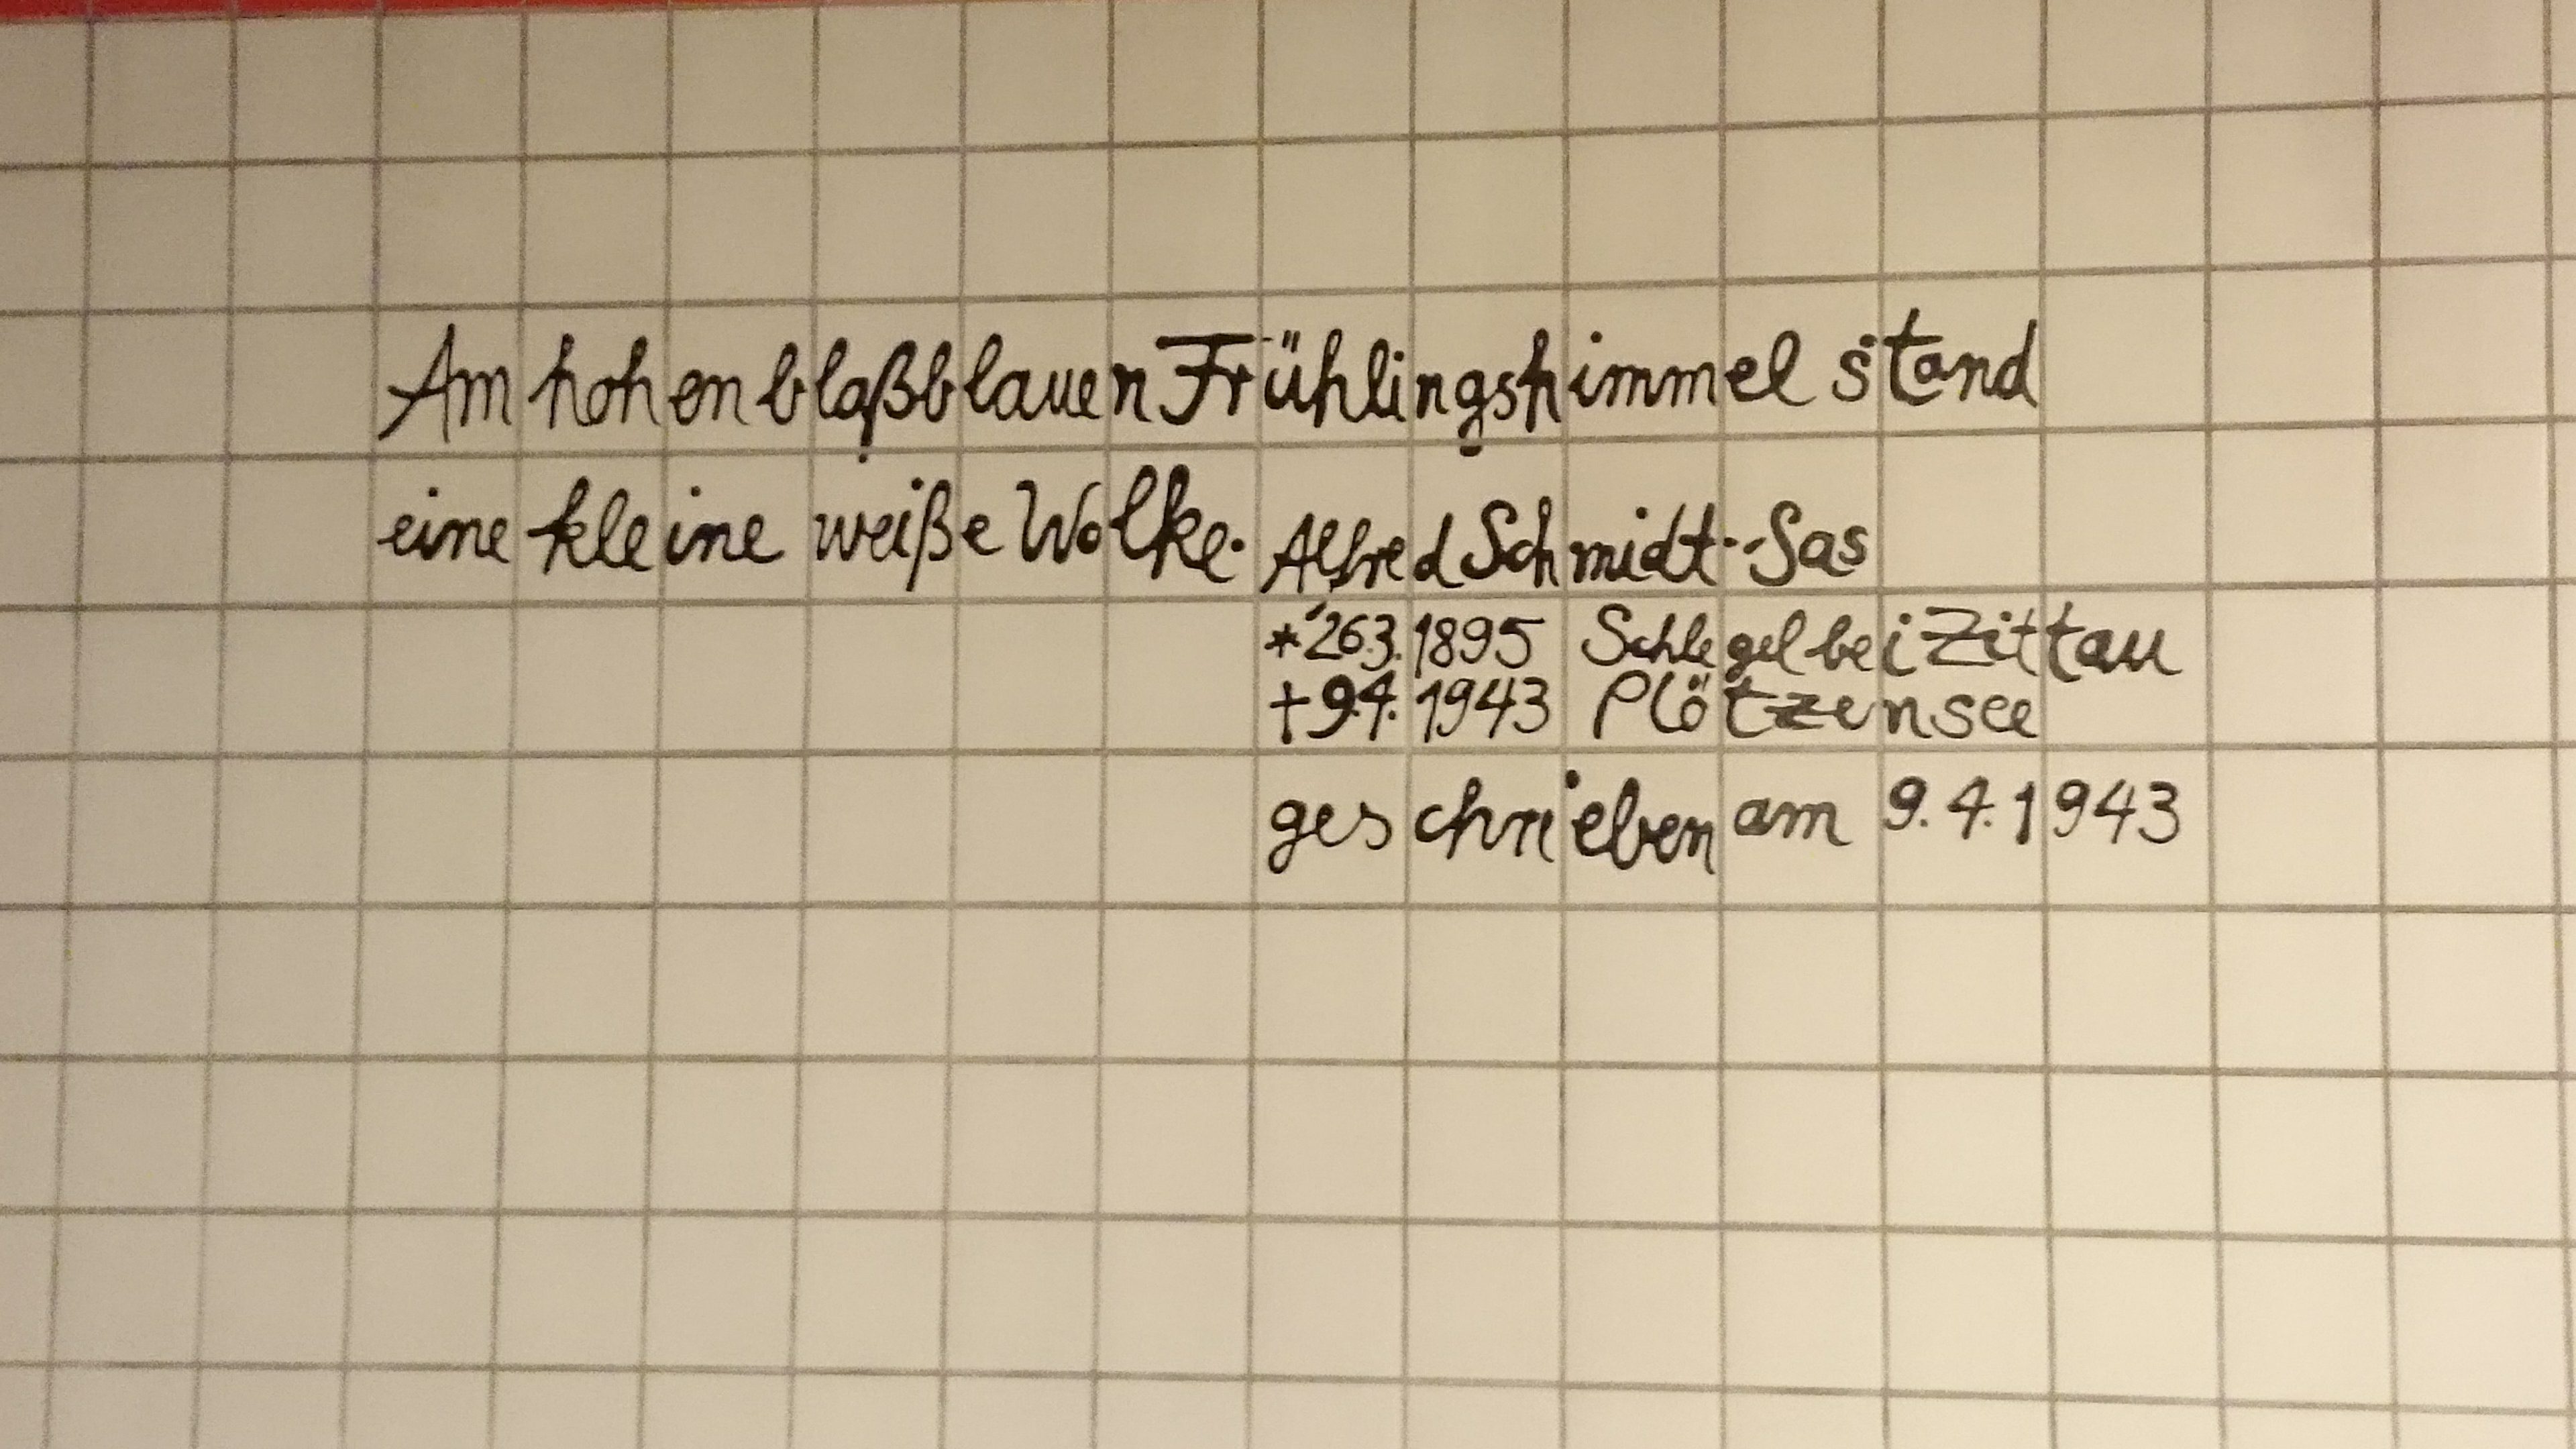 Am hohen blaßblauen Frühlingshimmel stand
eine kleine weiße Wolke. Alfred Schmidt-Sas
*26.3.1895 Schlegel bei Zittau
†9.4.1943 Plötzensee
geschrieben am 9.4.1943